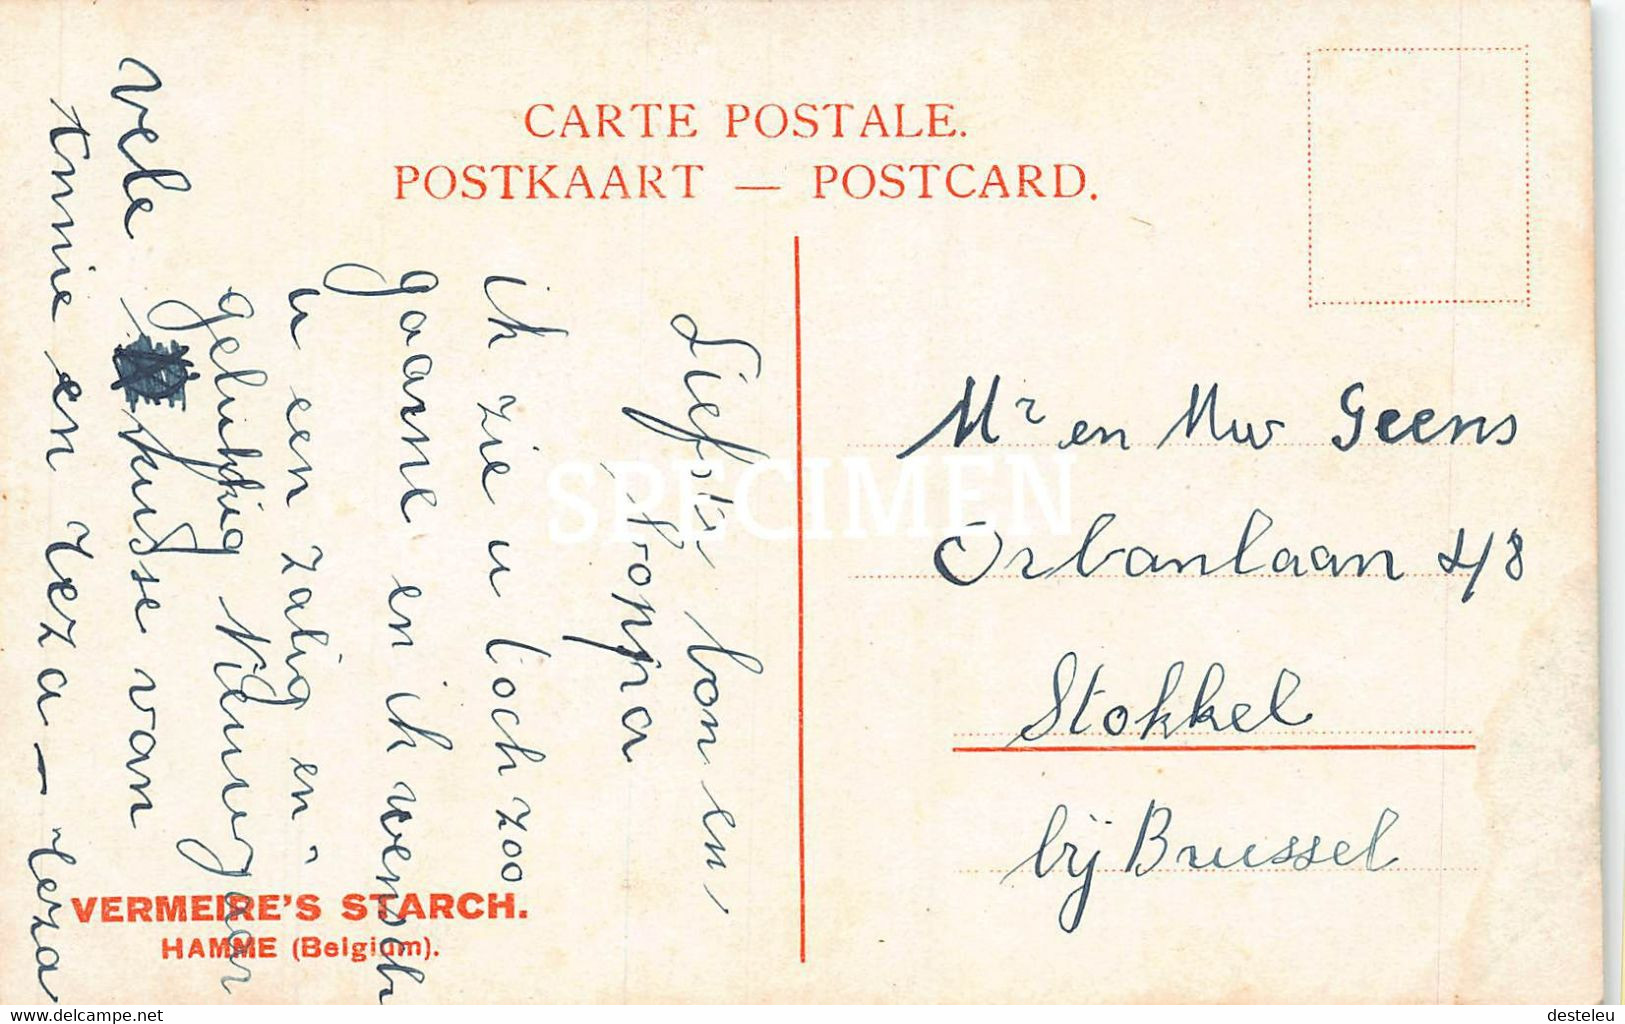 CARTE POSTALE.
POSTKAART — POSTCARD.
Liefste bon en
troppa
ik zie u toch zoo
gaarne en ik wensch
u een zalig en
gelukkig Nieuwjaar
vele kusse van
tnnie en Zeza —
VERMEIRE'S STARCH.
HAMME (Belgium).
Mr en Mw Geens
Orbanlaan 48
Stokkel
bij Brussel
SPECIMEN
www.delcampe.net
desteleu